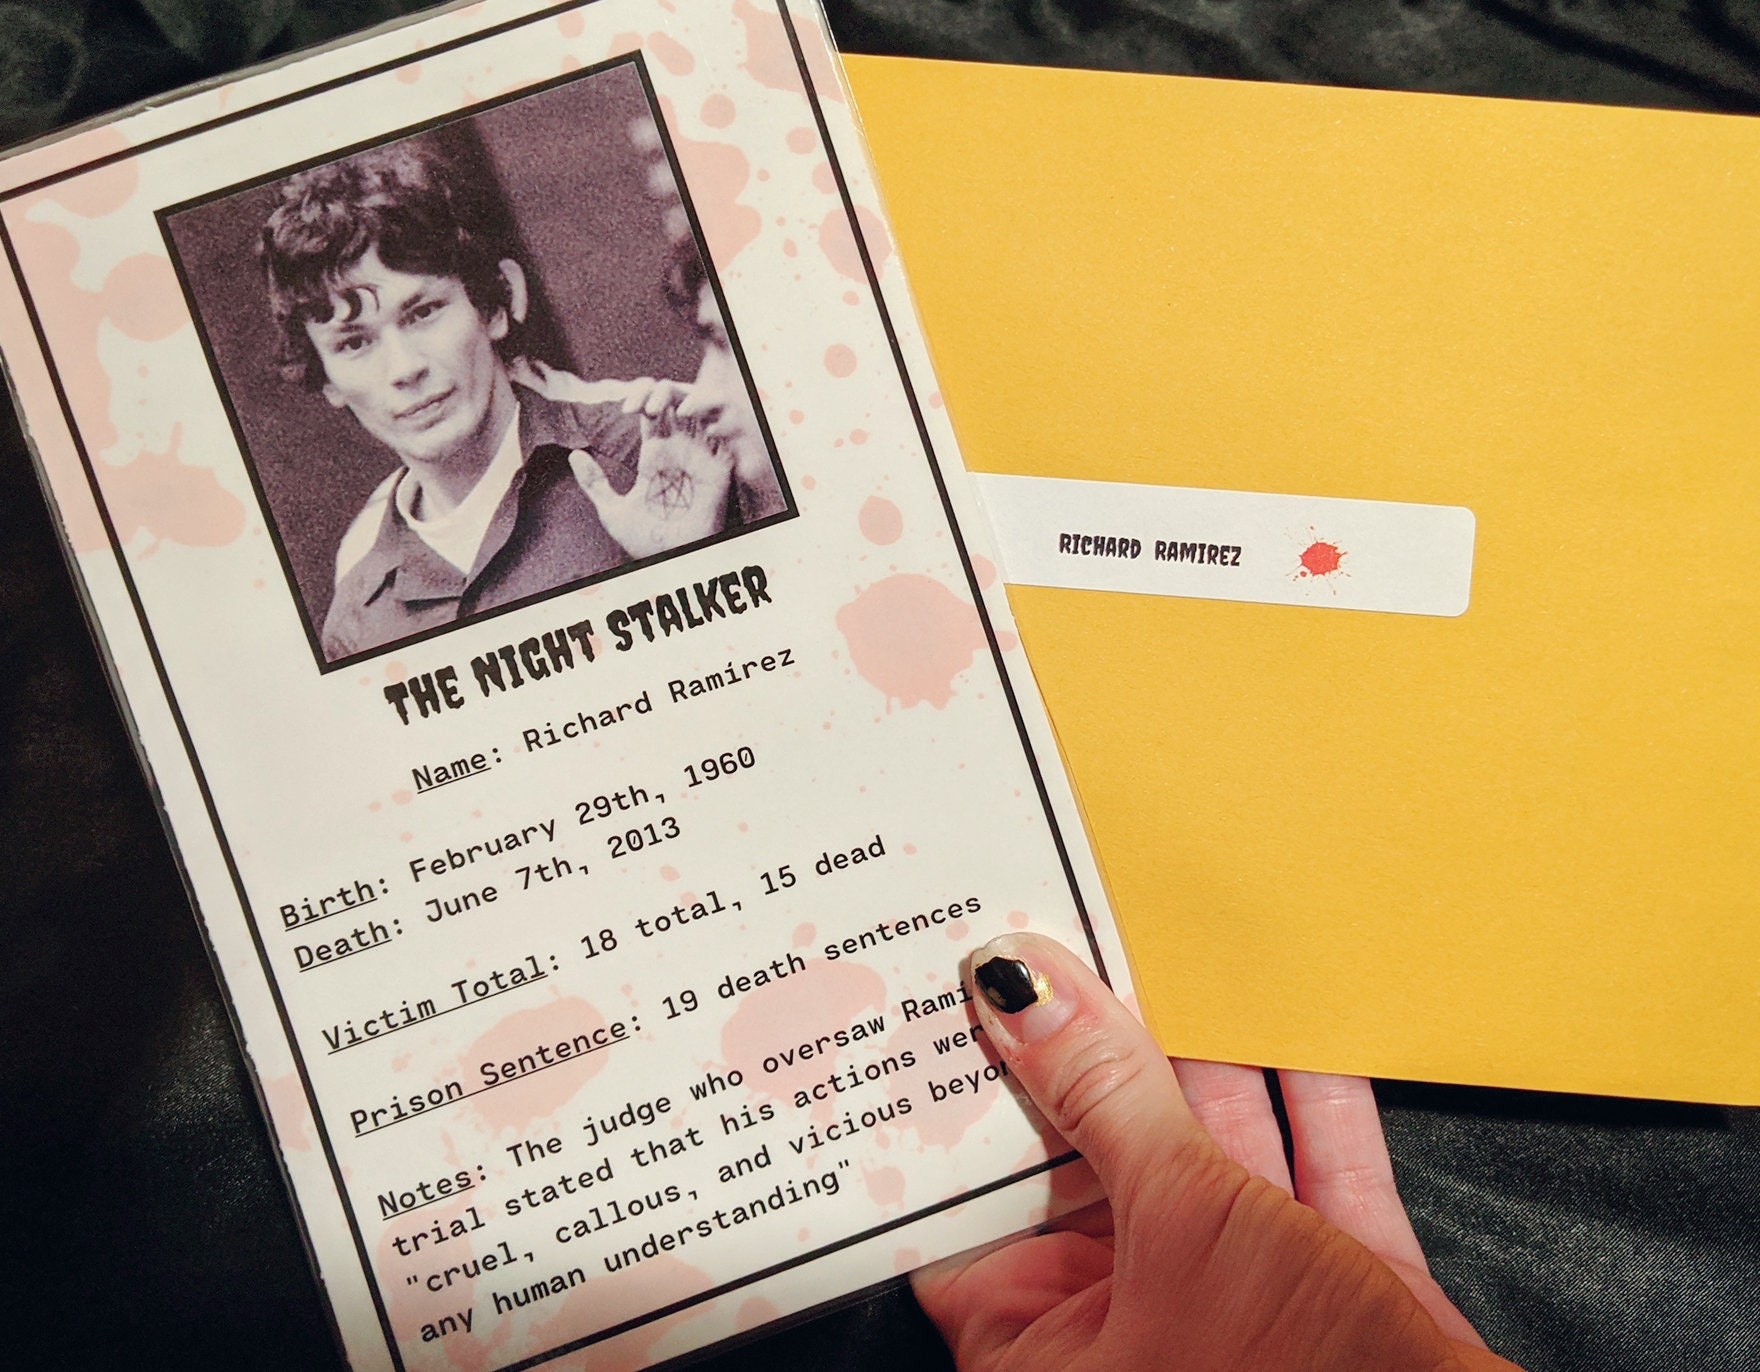 THE NIGHT STALKER
Name: Richard Ramirez
Birth: February 29th, 1960
Death: June 7th, 2013
Victim Total: 18 total, 15 dead
Prison Sentence: 19 death sentences
Notes: The judge who oversaw Rami
trial stated that his actions wer
"cruel, callous, and vicious beyon
any human understanding"
RICHARD RAMIREZ